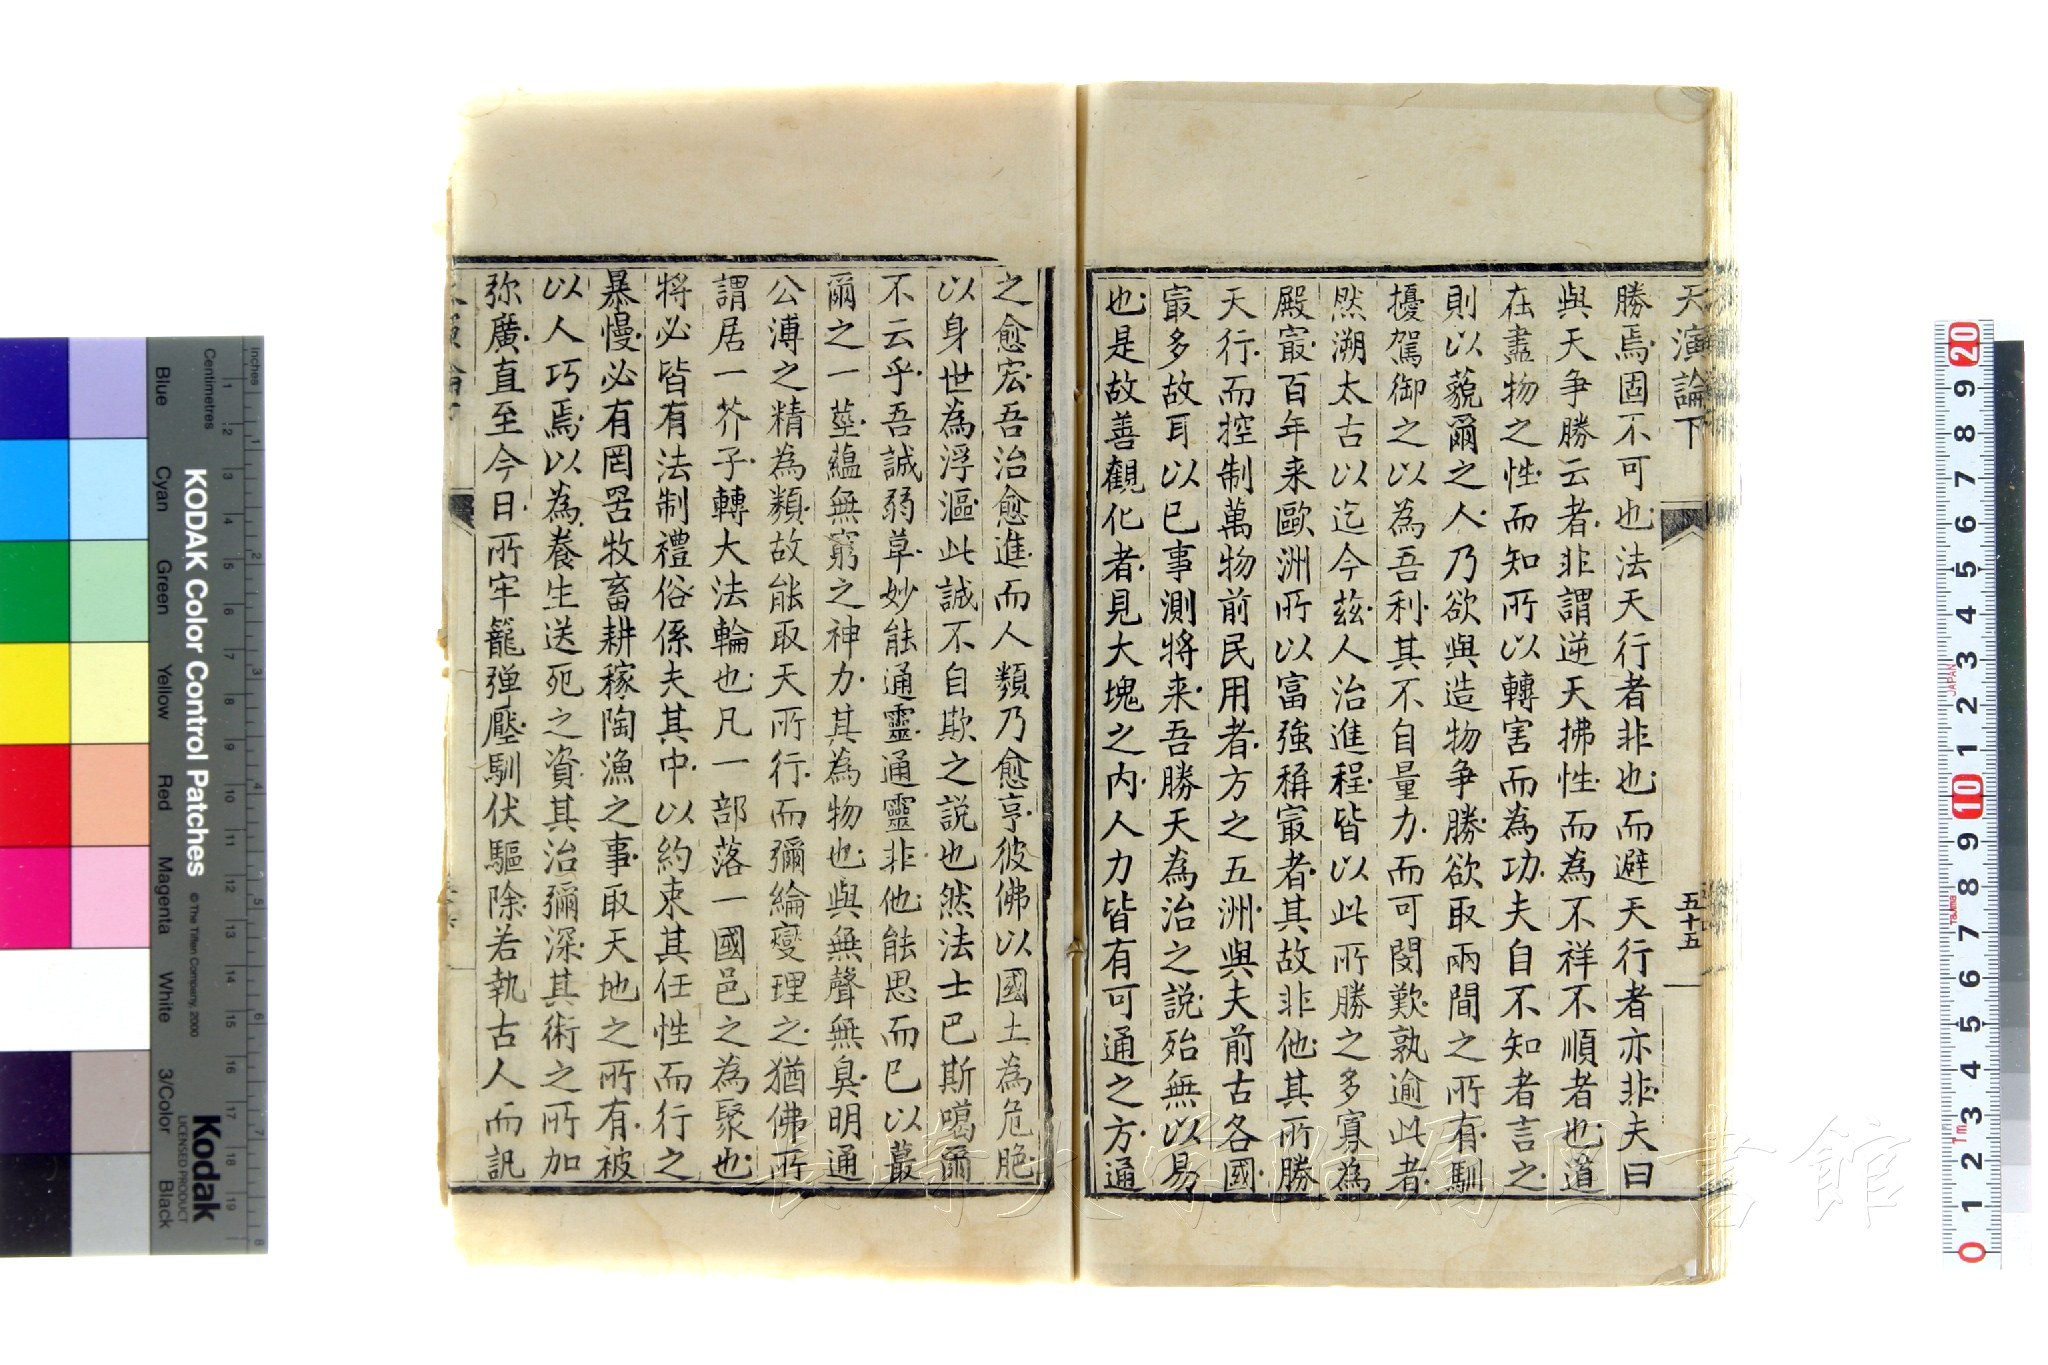 天演論下
五十五
勝焉固不可也法天行者非也而避天行者亦非夫曰
與天爭勝云者非謂逆天拂性而為不祥不順者也道
在盡物之性而知所以轉害而為功夫自不知者言之
則以藐爾之人乃欲與造物爭勝欲取兩間之所有馴
擾駕御之以為吾利其不自量力而可閔歎孰逾此者
然溯太古以迄今茲人治進程皆以此所勝之多寡為
殿㝡百年来歐洲所以富強稱㝡者其故非他其所勝
天行而控制萬物前民用者方之五洲與夫前古各國
㝡多故耳以已事測將来吾勝天為治之説殆無以易
也是故善觀化者見大塊之内人力皆有可通之方通
之愈宏吾治愈進而人類乃愈亨彼佛以國土為危脆
以身世為浮漚此誠不自欺之説也然法士巴斯噶爾
不云乎吾誠弱草妙能通靈通靈非他能思而已以蕞
爾之一莖蘊無窮之神力其為物也與無聲無臭明通
公溥之精為類故能取天所行而彌綸燮理之猶佛所
謂居一芥子轉大法輪也凡一部落一國邑之為聚也
將必皆有法制禮俗係夫其中以約束其任性而行之
暴慢必有罔罟牧畜耕稼陶漁之事取天地之所有被
以人巧焉以為養生送死之資其治彌深其術之所加
弥廣直至今日所牢籠弹壓馴伏驅除若執古人而訊
KODAK Color Control Patches
© The Tiffen Company, 2000
Kodak
LICENSED PRODUCT
Inches
Centimetres
Blue
Cyan
Green
Yellow
Red
Magenta
White
3/Color
Black
JAPAN
Tajima
長崎大学附属図書館